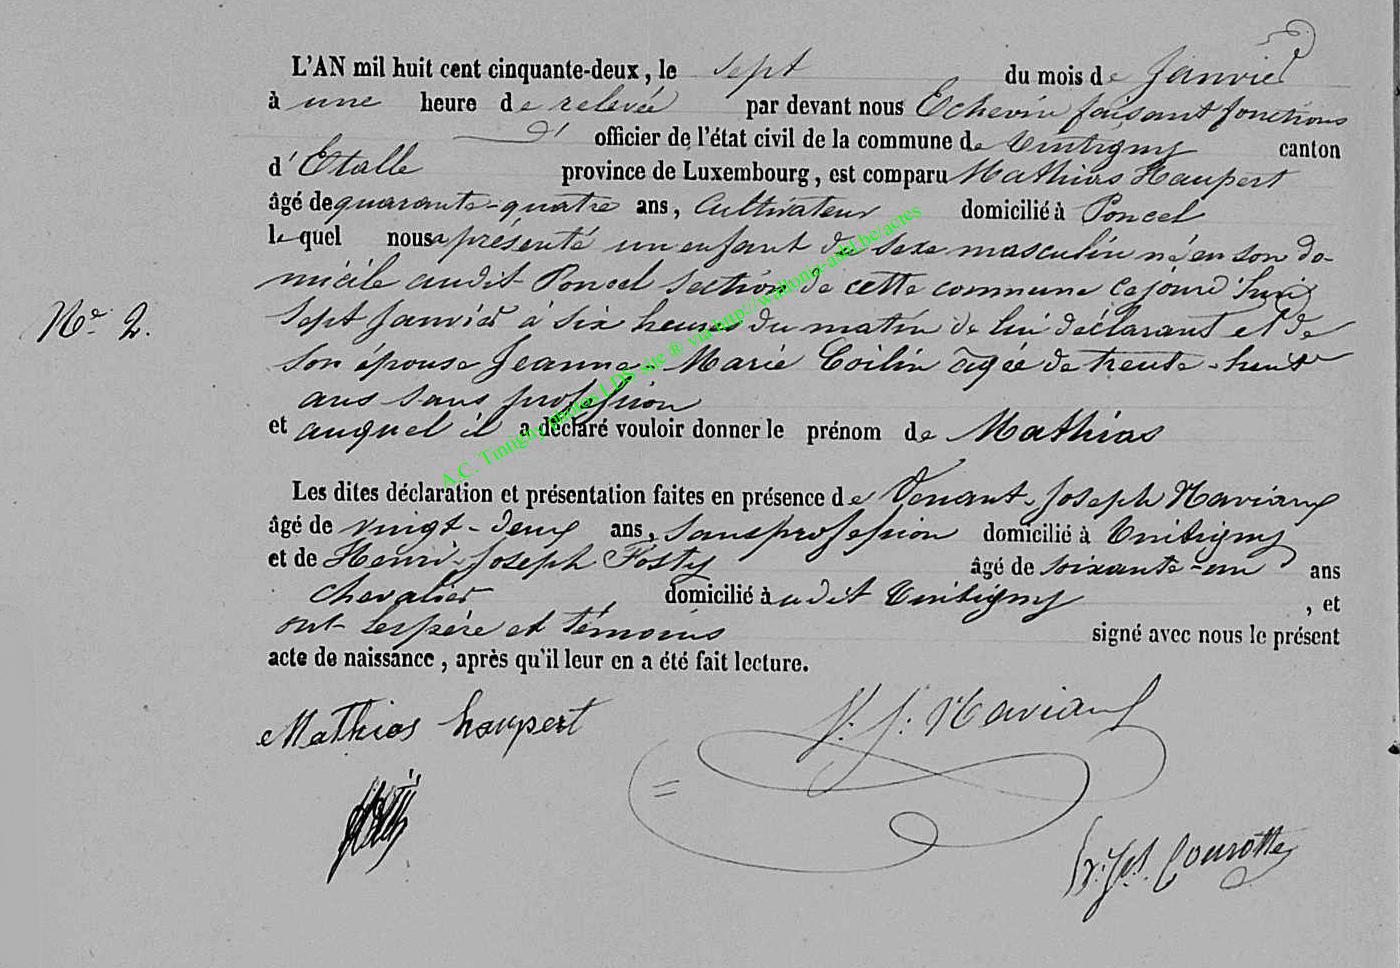 L'AN mil huit cent cinquante-deux, le sept du mois de Janvier
à une heure de relevée par devant nous Echevin faisant fonctions
d' officier de l'état civil de la commune de Tintigny canton
d'Etalle province de Luxembourg, est comparu Mathias Haupert
âgé de quarante-quatre ans, Cultivateur domicilié à Poncel
lequel nous a présenté un enfant de sexe masculin né en son do-
micile audit Poncel section de cette commune cejourd'hui
Sept Janvier à six heures du matin de lui déclarant et de
Nº 2.
son épouse Jeanne-Marie Coilin âgée de trente-huit
ans sans profession
et auquel il a déclaré vouloir donner le prénom de Mathias
Les dites déclaration et présentation faites en présence de Venant-Joseph Maviaux
âgé de vingt-deux ans, sans profession domicilié à Tintigny
et de Henri-Joseph Fosty âgé de soixante-un ans
chevalier domicilié audit Tintigny, et
ont les père et témoins signé avec nous le présent
acte de naissance, après qu'il leur en a été fait lecture.
Mathias haupert V. J. Maviaux
Jos. Courotte
A.C. Tintigny photos LDS site ® via http://wallonia-asbl.be/actes